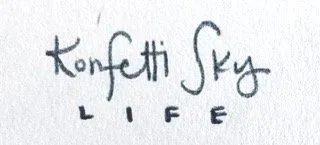 Konfetti Sky
LIFE